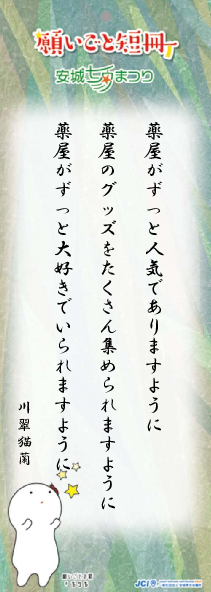 願いごと短冊
安城七夕まつり
薬屋がずっと人気でありますように
薬屋のグッズをたくさん集められますように
薬屋がずっと大好きでいられますように
川翠猫蘭
JCI